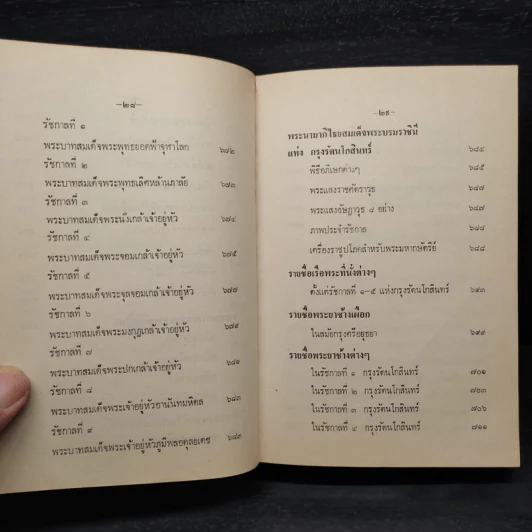 —๒๘—
รัชกาลที่ ๑
พระบาทสมเด็จพระพุทธยอดฟ้าจุฬาโลก ๖๗๒
รัชกาลที่ ๒
พระบาทสมเด็จพระพุทธเลิศหล้านภาลัย ๖๗๓
รัชกาลที่ ๓
พระบาทสมเด็จพระนั่งเกล้าเจ้าอยู่หัว ๖๗๔
รัชกาลที่ ๔
พระบาทสมเด็จพระจอมเกล้าเจ้าอยู่หัว ๖๗๕
รัชกาลที่ ๕
พระบาทสมเด็จพระจุลจอมเกล้าเจ้าอยู่หัว ๖๗๗
รัชกาลที่ ๖
พระบาทสมเด็จพระมงกุฎเกล้าเจ้าอยู่หัว ๖๗๙
รัชกาลที่ ๗
พระบาทสมเด็จพระปกเกล้าเจ้าอยู่หัว ๖๘๑
รัชกาลที่ ๘
พระบาทสมเด็จพระเจ้าอยู่หัวอานันทมหิดล ๖๘๓
รัชกาลที่ ๙
พระบาทสมเด็จพระเจ้าอยู่หัวภูมิพลอดุลยเดช ๖๘๓
—๒๙—
พระนามาภิไธยสมเด็จพระบรมราชินี
แห่ง กรุงรัตนโกสินทร์ ๖๘๔
พิธีอภิเษกต่างๆ ๖๘๕
พระแสงราชศัตราวุธ ๖๘๗
พระแสงอัษฎาวุธ ๘ อย่าง ๖๘๗
ภาพประจำรัชกาล ๖๘๘
เครื่องราชูปโภคสำหรับพระมหากษัตริย์ ๖๘๘
รายชื่อเรือพระที่นั่งต่างๆ
ตั้งแต่รัชกาลที่ ๑-๕ แห่งกรุงรัตนโกสินทร์ ๖๙๓
รายชื่อพระยาช้างเผือก
ในสมัยกรุงศรีอยุธยา ๖๙๙
รายชื่อพระยาช้างต่างๆ
ในรัชกาลที่ ๑ กรุงรัตนโกสินทร์ ๗๐๑
ในรัชกาลที่ ๒ กรุงรัตนโกสินทร์ ๗๐๓
ในรัชกาลที่ ๓ กรุงรัตนโกสินทร์ ๗๐๖
ในรัชกาลที่ ๔ กรุงรัตนโกสินทร์ ๗๑๑